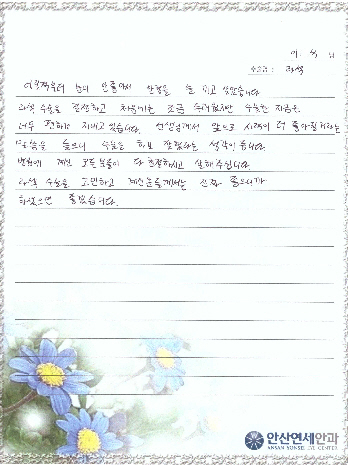 이 석 님
수술명 : 라섹
어렸을때부터 눈이 안좋아서 안경을 늘 끼고 있었습니다.
라섹 수술을 결정하고 처음에는 조금 두려웠지만 수술한 지금은
너무 편하게 지내고 있습니다. 선생님께서 앞으로 시력이 더 좋아질거라는
말씀을 들으니 수술을 하길 잘했다는 생각이 듭니다.
병원에 계신 모든 분들이 다 친절하시고 잘해주십니다.
라섹 수술을 고민하고 계신분들께서는 진짜 좋으니까
하셨으면 좋겠습니다.
안산연세안과
ANSAN YONSEI EYE CENTER